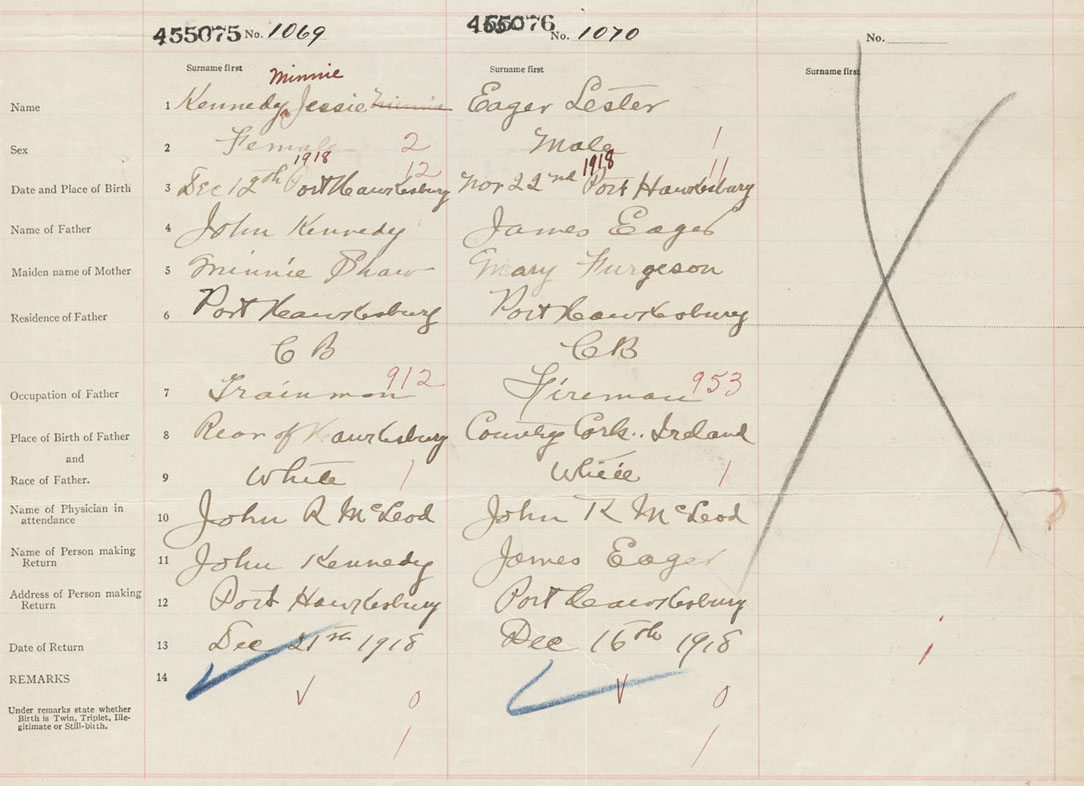 455075 No. 1069
455076 No. 1070
No.
Surname first
Surname first
Surname first
Minnie
Name 1 Kennedy Jessie Minnie Eager Lester
Sex 2 Female 2 Male 1
1918 12 1918 11
Date and Place of Birth 3 Dec 12th Port Hawkesbury Nov 22nd Port Hawkesbury
Name of Father 4 John Kennedy James Eager
Maiden name of Mother 5 Minnie Shaw Mary Furgeson
Residence of Father 6 Port Hawkesbury Port Hawkesbury
C B C B
912 953
Occupation of Father 7 Trainman Fireman
Place of Birth of Father 8 Rear of Hawkesbury County Cork.. Ireland
and
Race of Father. 9 White 1 White 1
Name of Physician in
attendance 10 John R McLeod John R McLeod
Name of Person making
Return 11 John Kennedy James Eager
Address of Person making
Return 12 Port Hawkesbury Port Hawkesbury
Date of Return 13 Dec 21st 1918 Dec 16th 1918
REMARKS 14
0 0
Under remarks state whether
Birth is Twin, Triplet, Ille-
gitimate or Still-birth.
1 1